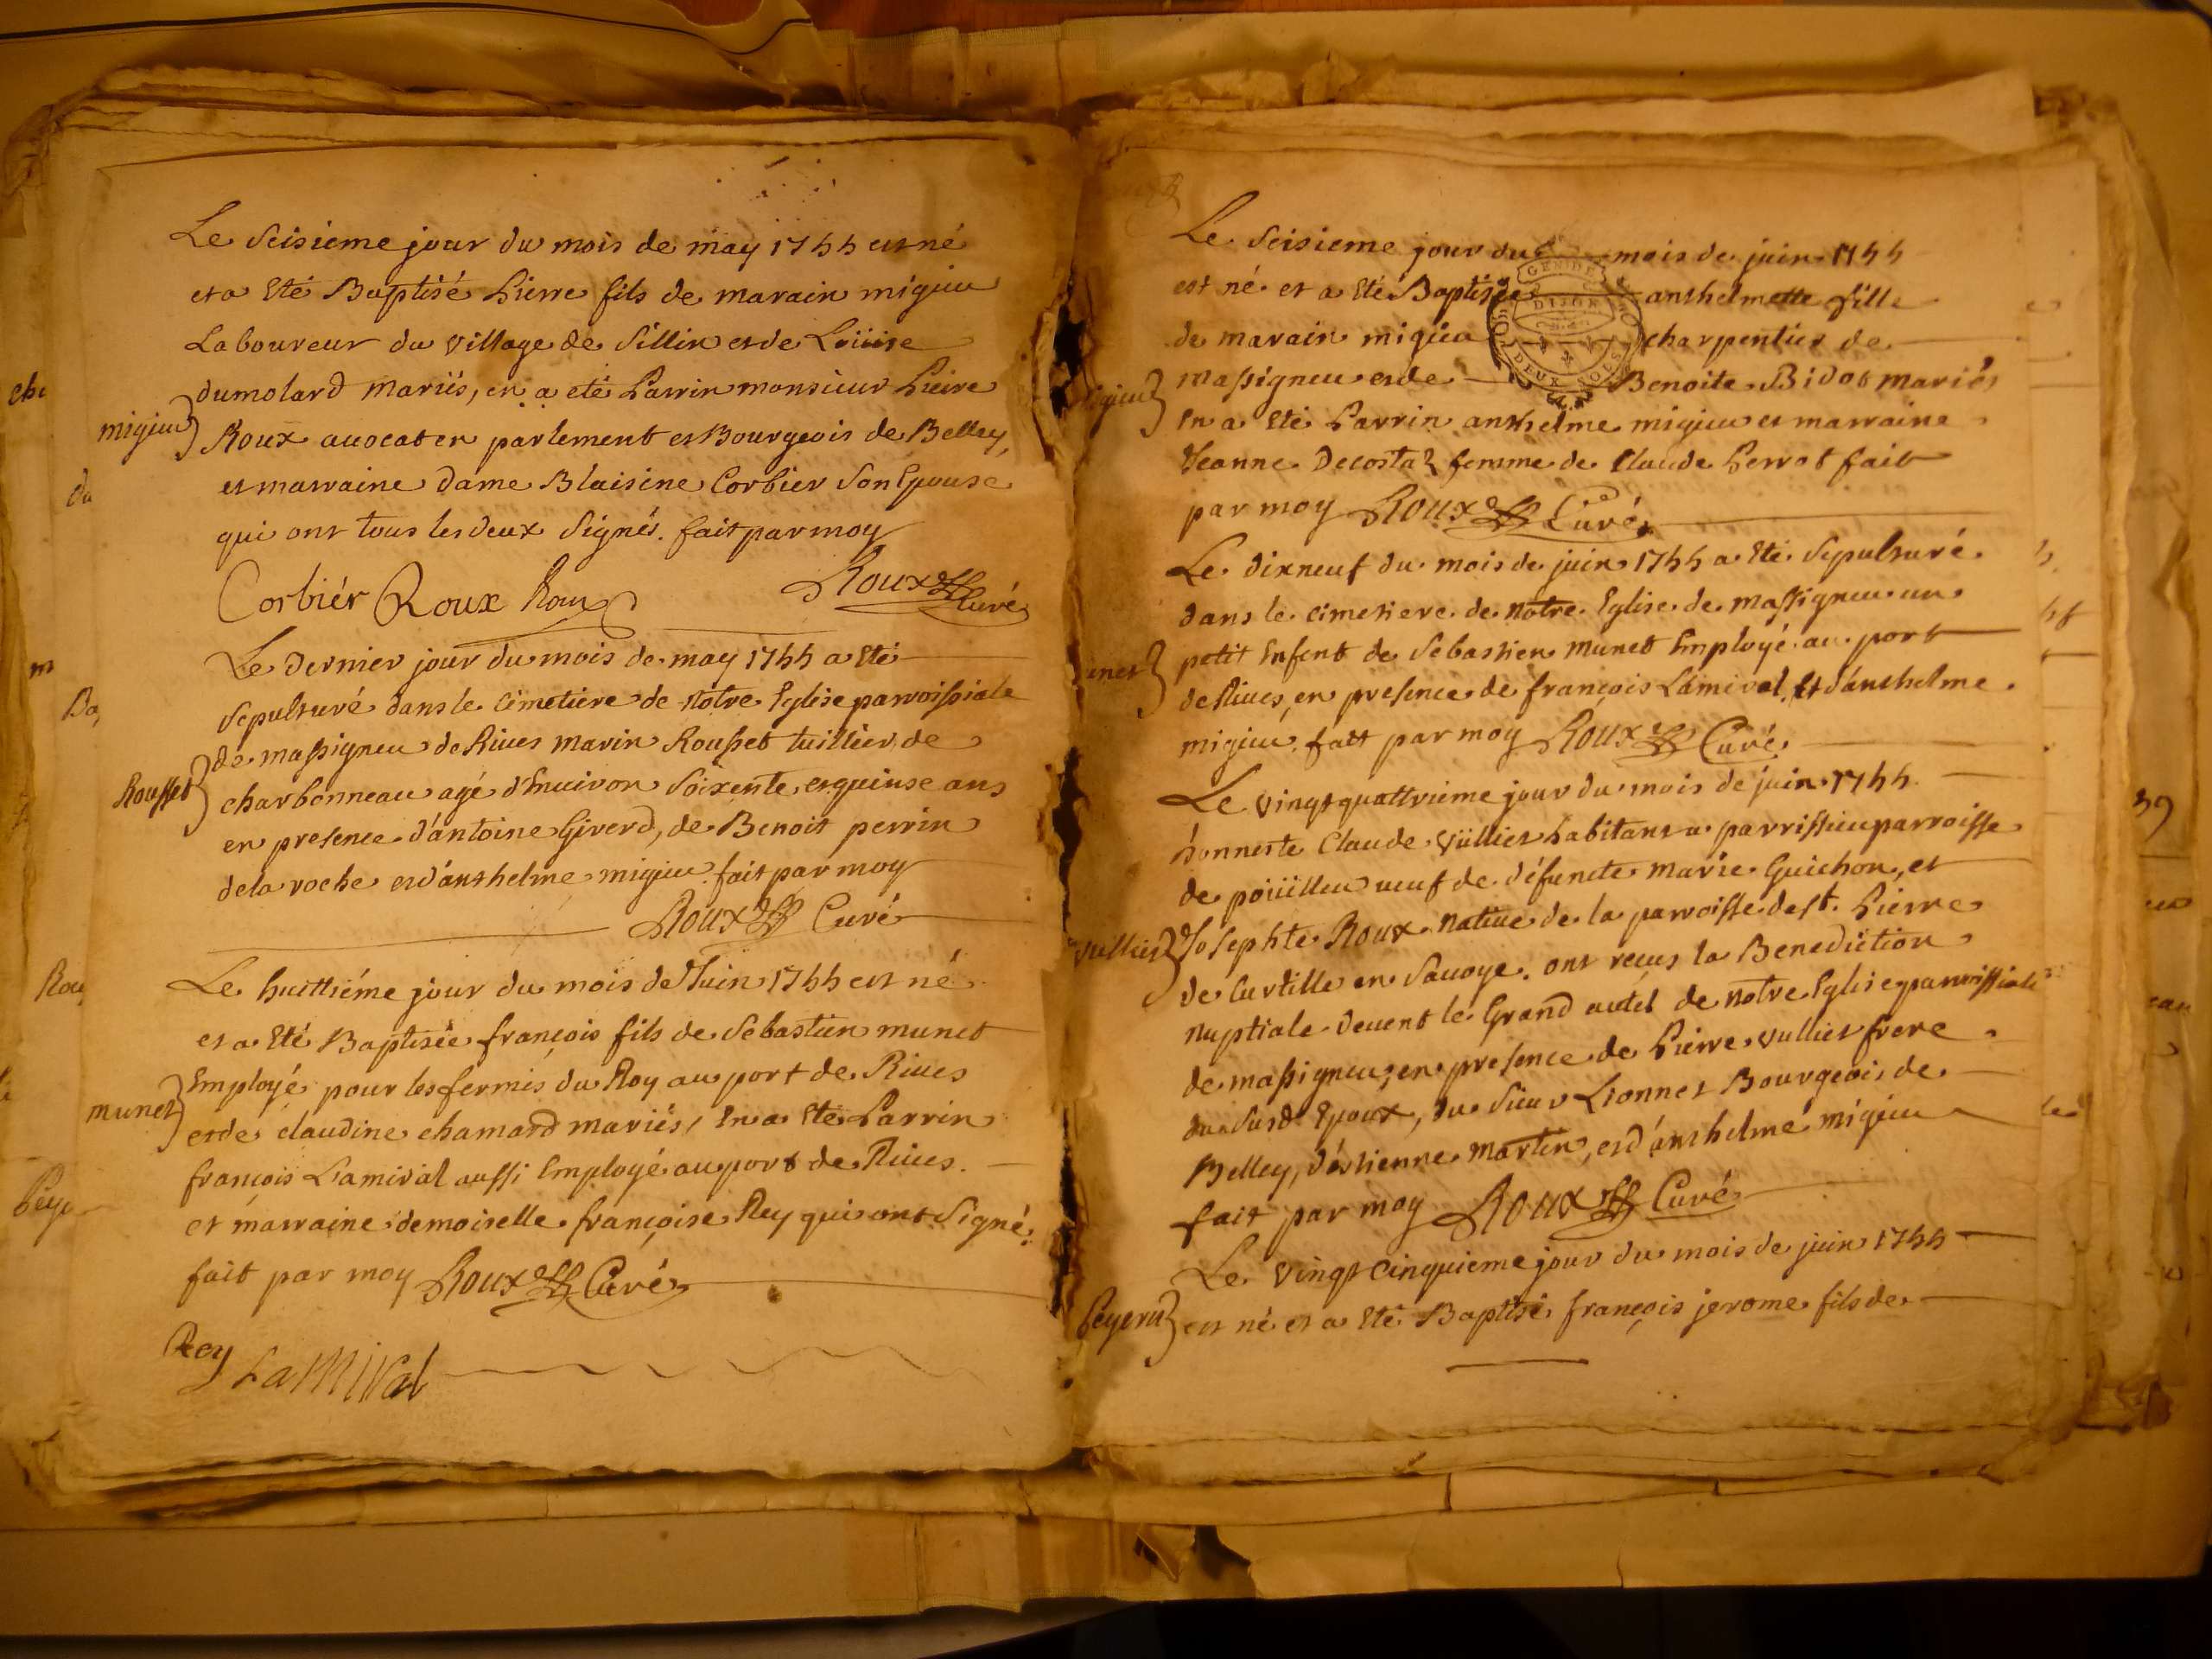 Le seisieme jour du mois de may 1744 est né
et a eté Baptisé Pierre fils de marain migieu
Laboureur du village de Sillin et de Loüise
dumolard mariés, en a eté Parrin monsieur Pieire
migieu
Roux avocat en parlement et Bourgeois de Belley,
et marraine dame Blaisine Corbier son Epouse
qui ont tous les deux signés. fait par moy
Corbiér Roux Roux
Roux Curé
Le dernier jour du mois de may 1744 a eté
sepulturé dans le cimetiere de notre Eglise parroissiale
de massigneu de Rives marin Rousset tuillier de
Rousset
charbonneau agé d'Enuiron soixente et quinse ans
en presence d'antoine Giverd, de Benoit perrin
de la roche et d'anthelme migieu. fait par moy
Roux Curé
Le huittiéme jour du mois de Juin 1744 est né
et a eté Baptisée françois fils de Sebastien munet
Employé pour les fermis du Roy au port de Rives
munet
et de claudine chamard mariés, En a eté Parrin
françois Lamival aussi Employé au port de Rives.
et marraine demoiselle françoise Rey qui ont signé.
fait par moy Roux Curé
Rey Lamival
Le seisieme jour du mois de juin 1744
est né et a eté Baptisée anthelmette fille
GEN DE DIJON
DEUX SOLS
de marain migieu charpentier de
massigneu et de Benoite Bidot mariés
en a eté Parrin anthelme migieu et marraine
Jeanne Decostaz femme de Claude Perrot fait
par moy Roux Curé
Le dixneuf du mois de juin 1744 a eté sepulturé
dans le cimetiere de notre Eglise de massigneu un
petit Enfent de Sebastien munet Employé au port
de Rives, en presence de françois Lamival, Et d'anthelme
migieu. fait par moy Roux Curé
Le vingt quattrieme jour du mois de juin 1744
honneste Claude Vüllier habitant a parrissieu parroisse
de poüilleu veuf de défuncte marie Guichon, et
vullier
Josephte Roux native de la parroisse de st. Pierre
de Curtille en Savoye. ont reçus la Benediction
nuptiale devent le Grand autel de notre Eglise parroissiale
de massigneu, en presence de Pierre vullier frere
du susd. Epoux, du sieur Lionnet Bourgeois de
Belley, d'éstienne martin, et d'anthelme migieu
fait par moy Roux Curé
Le vingt cinquieme jour du mois de juin 1744
est né et a eté Baptisé françois jerome fils de
39